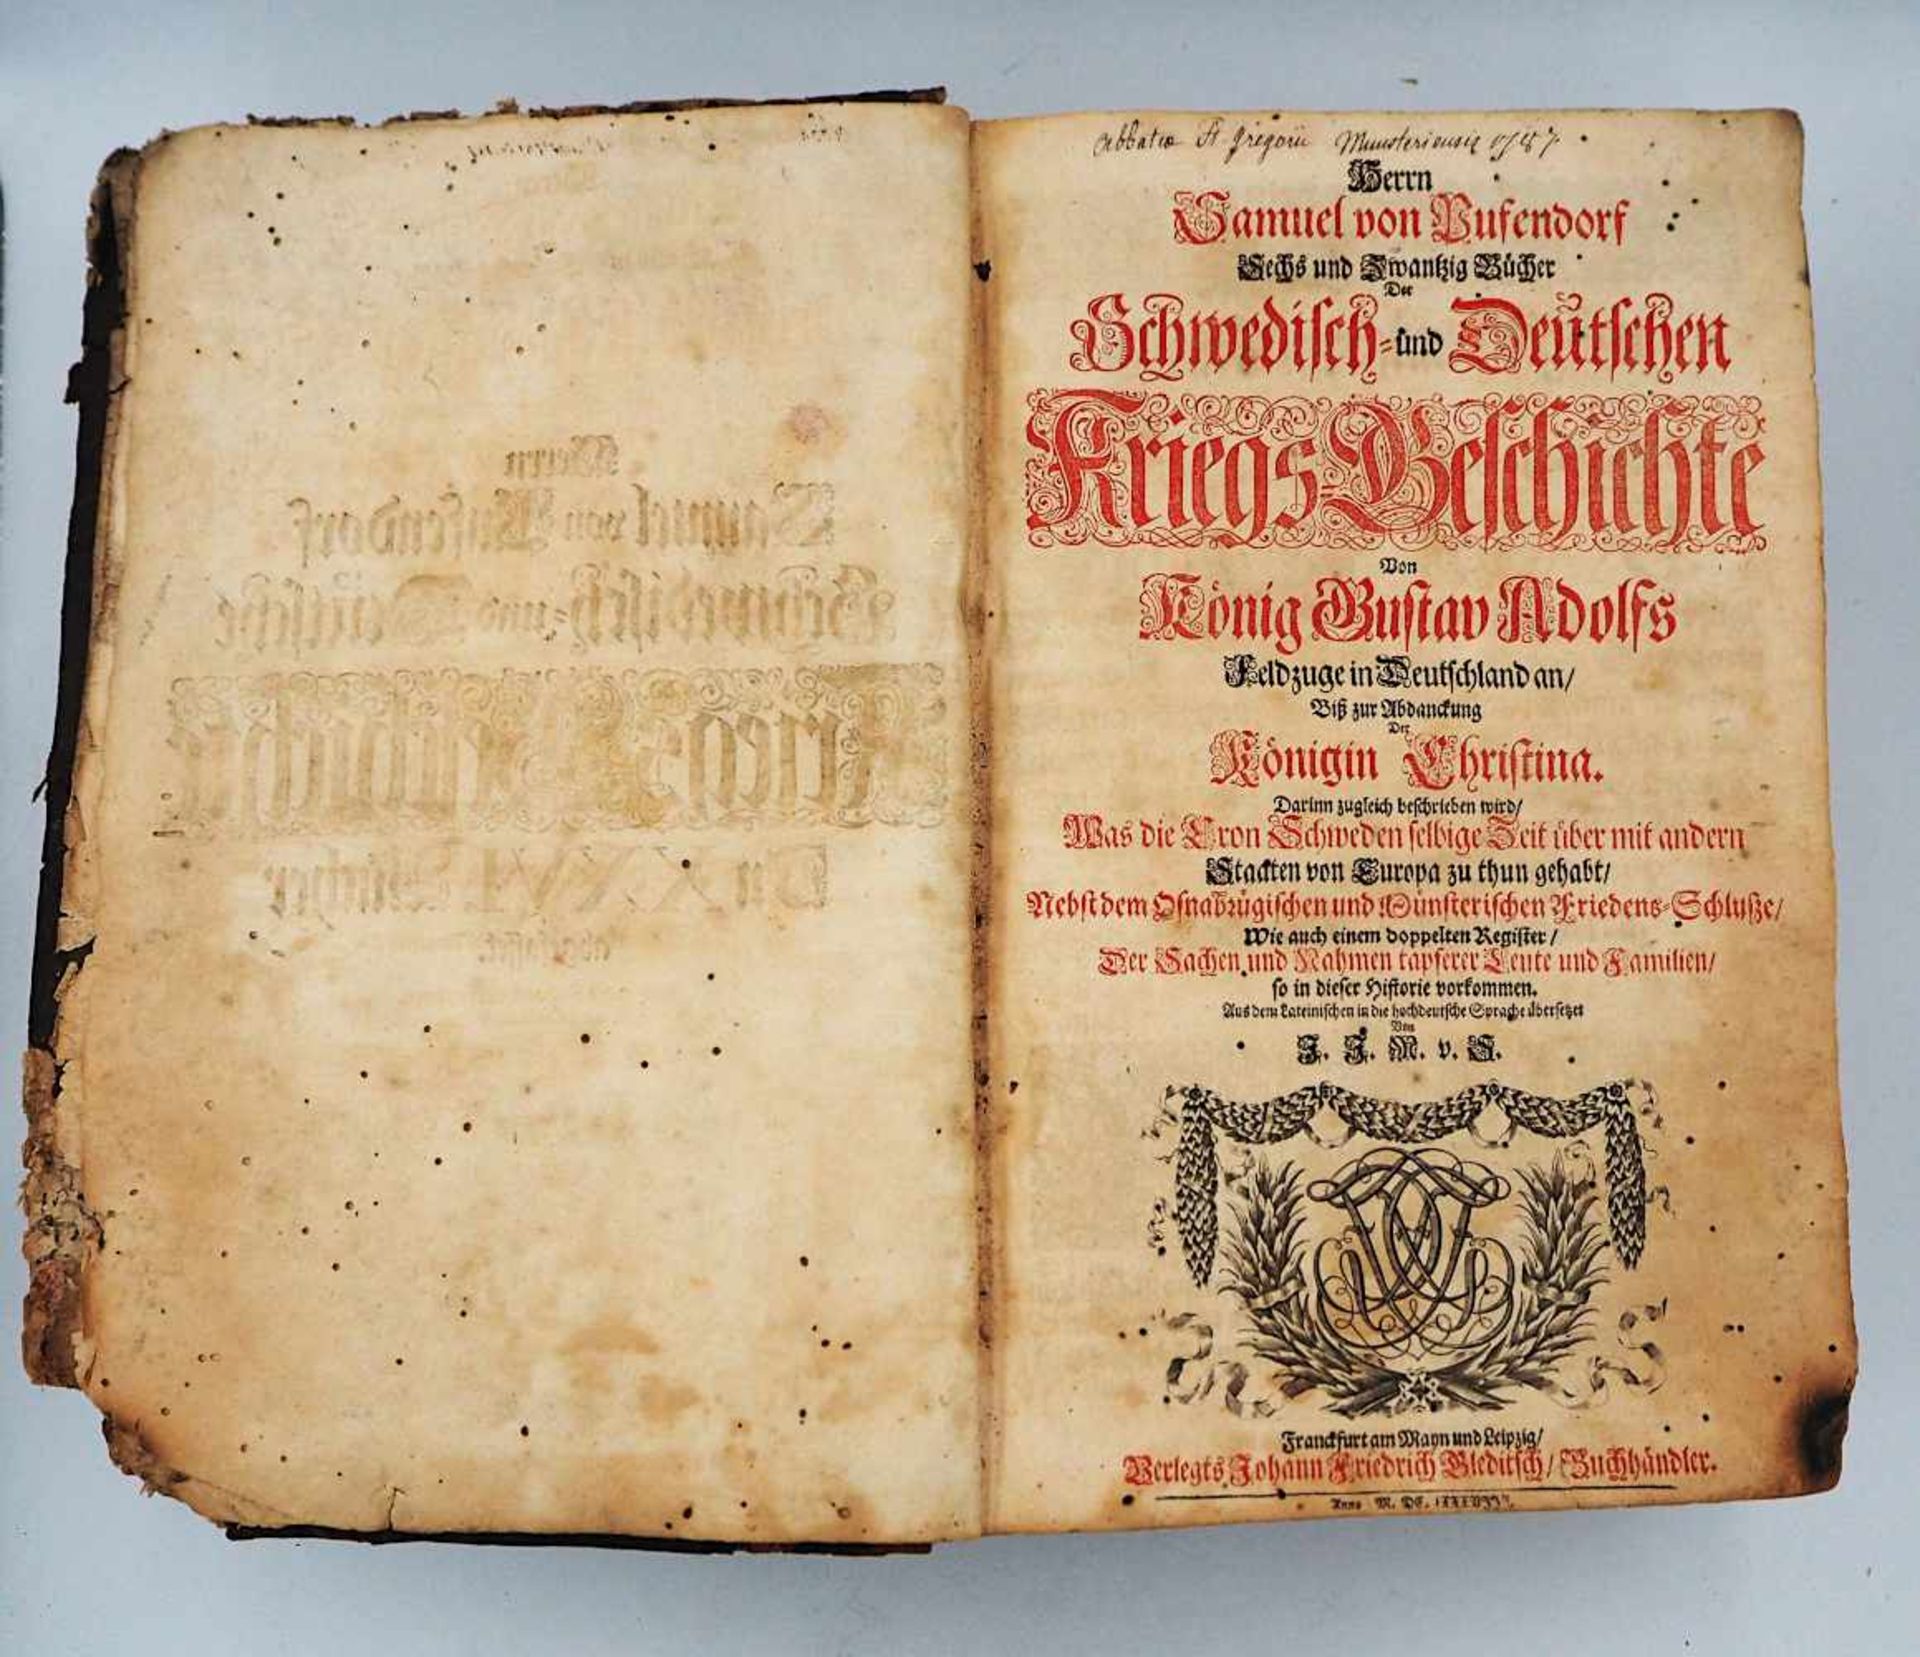 Abbatiæ St Gregorii Munsteriensis
Herrn
Samuel von Pufendorf
Sechs und Zwantzig Bücher
Der
Schwedisch- und Deütschen
Kriegs-Geschichte
Von
König Gustav Adolfs
Feldzuge in Deutschland an/
Biß zur Abdanckung
Der
Königin Christina.
Darinn zugleich beschrieben wird/
Was die Cron Schweden selbige Zeit über mit andern
Staaten von Europa zu thun gehabt/
Nebst dem Osnabrügischen und Münsterischen Friedens-Schluße/
Wie auch einem doppelten Register/
Der Sachen und Nahmen tapferer Leute und Familien/
so in dieser Historie vorkommen.
Aus dem Lateinischen in die hochdeutsche Sprache übersetzet
Von
J. J. M. v. S.
Franckfurt am Mayn und Leipzig/
Verlegts Johann Friedrich Gleditsch/ Buchhändler.
Anno M. DC.